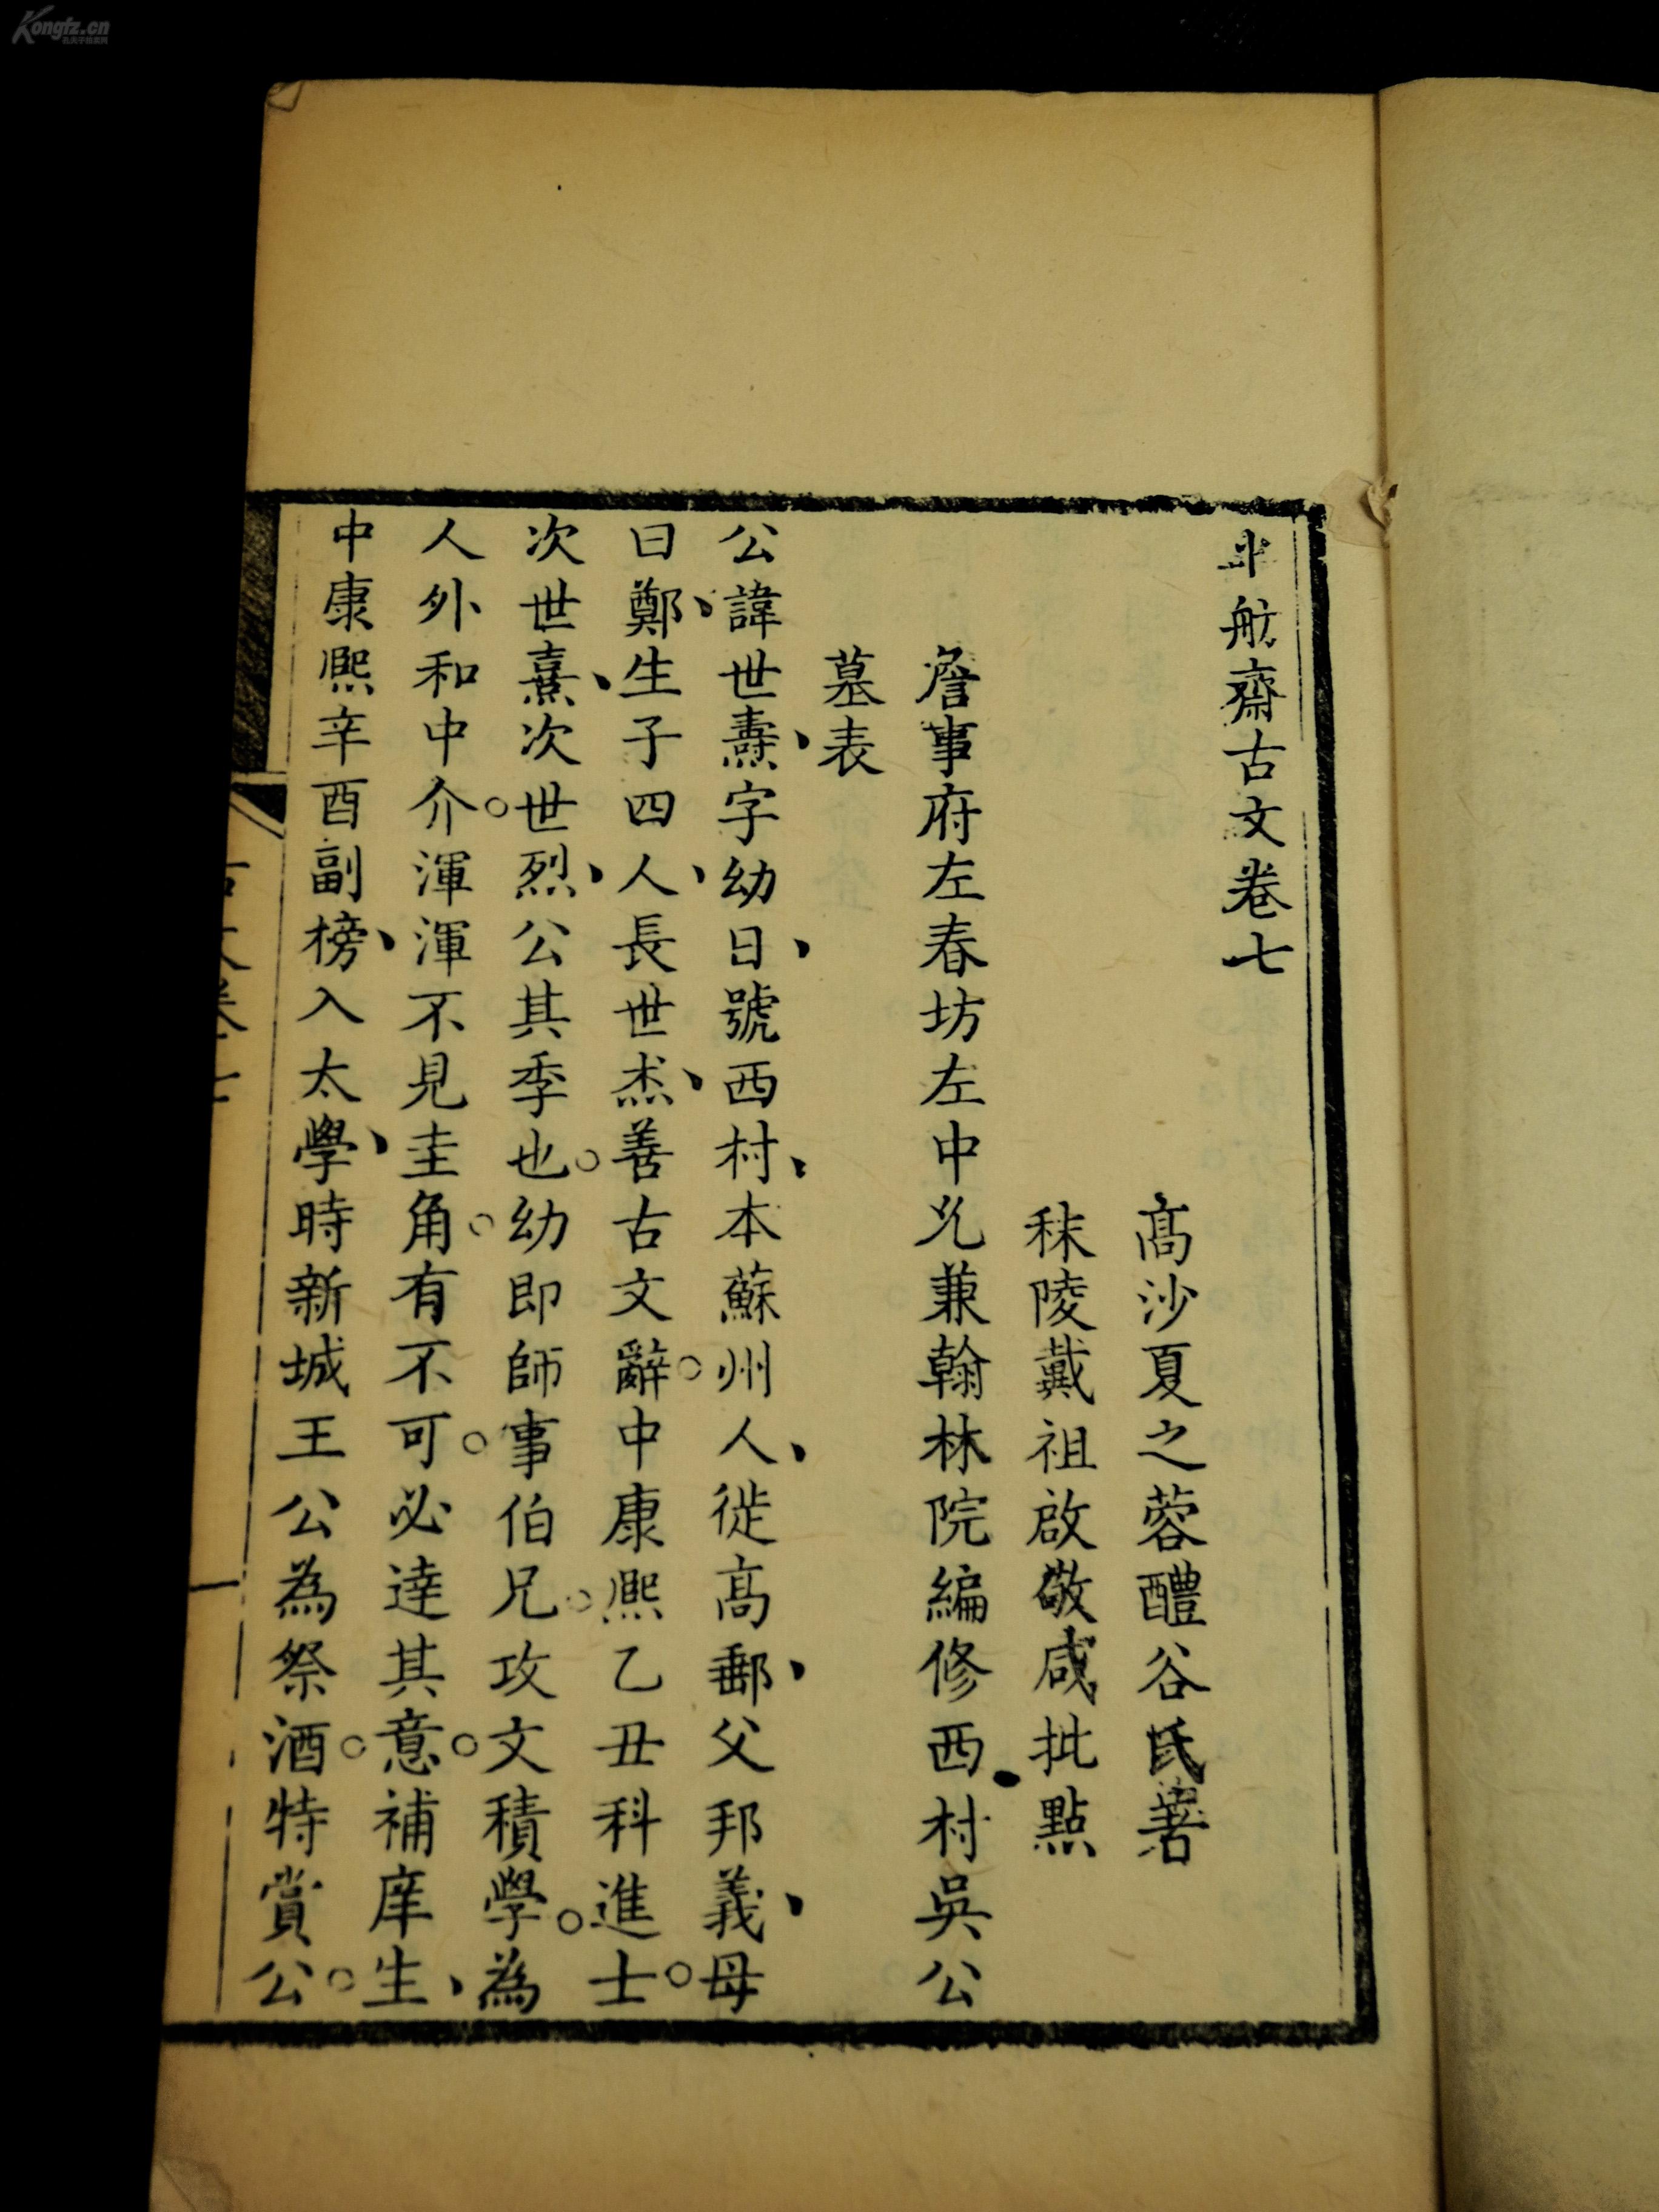 半舫齋古文卷七
高沙夏之蓉醴谷氏著
秣陵戴祖啟敬咸批點
詹事府左春坊左中允兼翰林院編修西村吳公
墓表
公諱世燾字幼日號西村本蘇州人徙高郵父邦義母
曰鄭生子四人長世杰善古文辭中康熙乙丑科進士
次世熹次世烈公其季也幼即師事伯兄攻文積學為
人外和中介渾渾不見圭角有不可必達其意補庠生
中康熙辛酉副榜入太學時新城王公為祭酒特賞公
古文卷七
一
Kongfz.cn